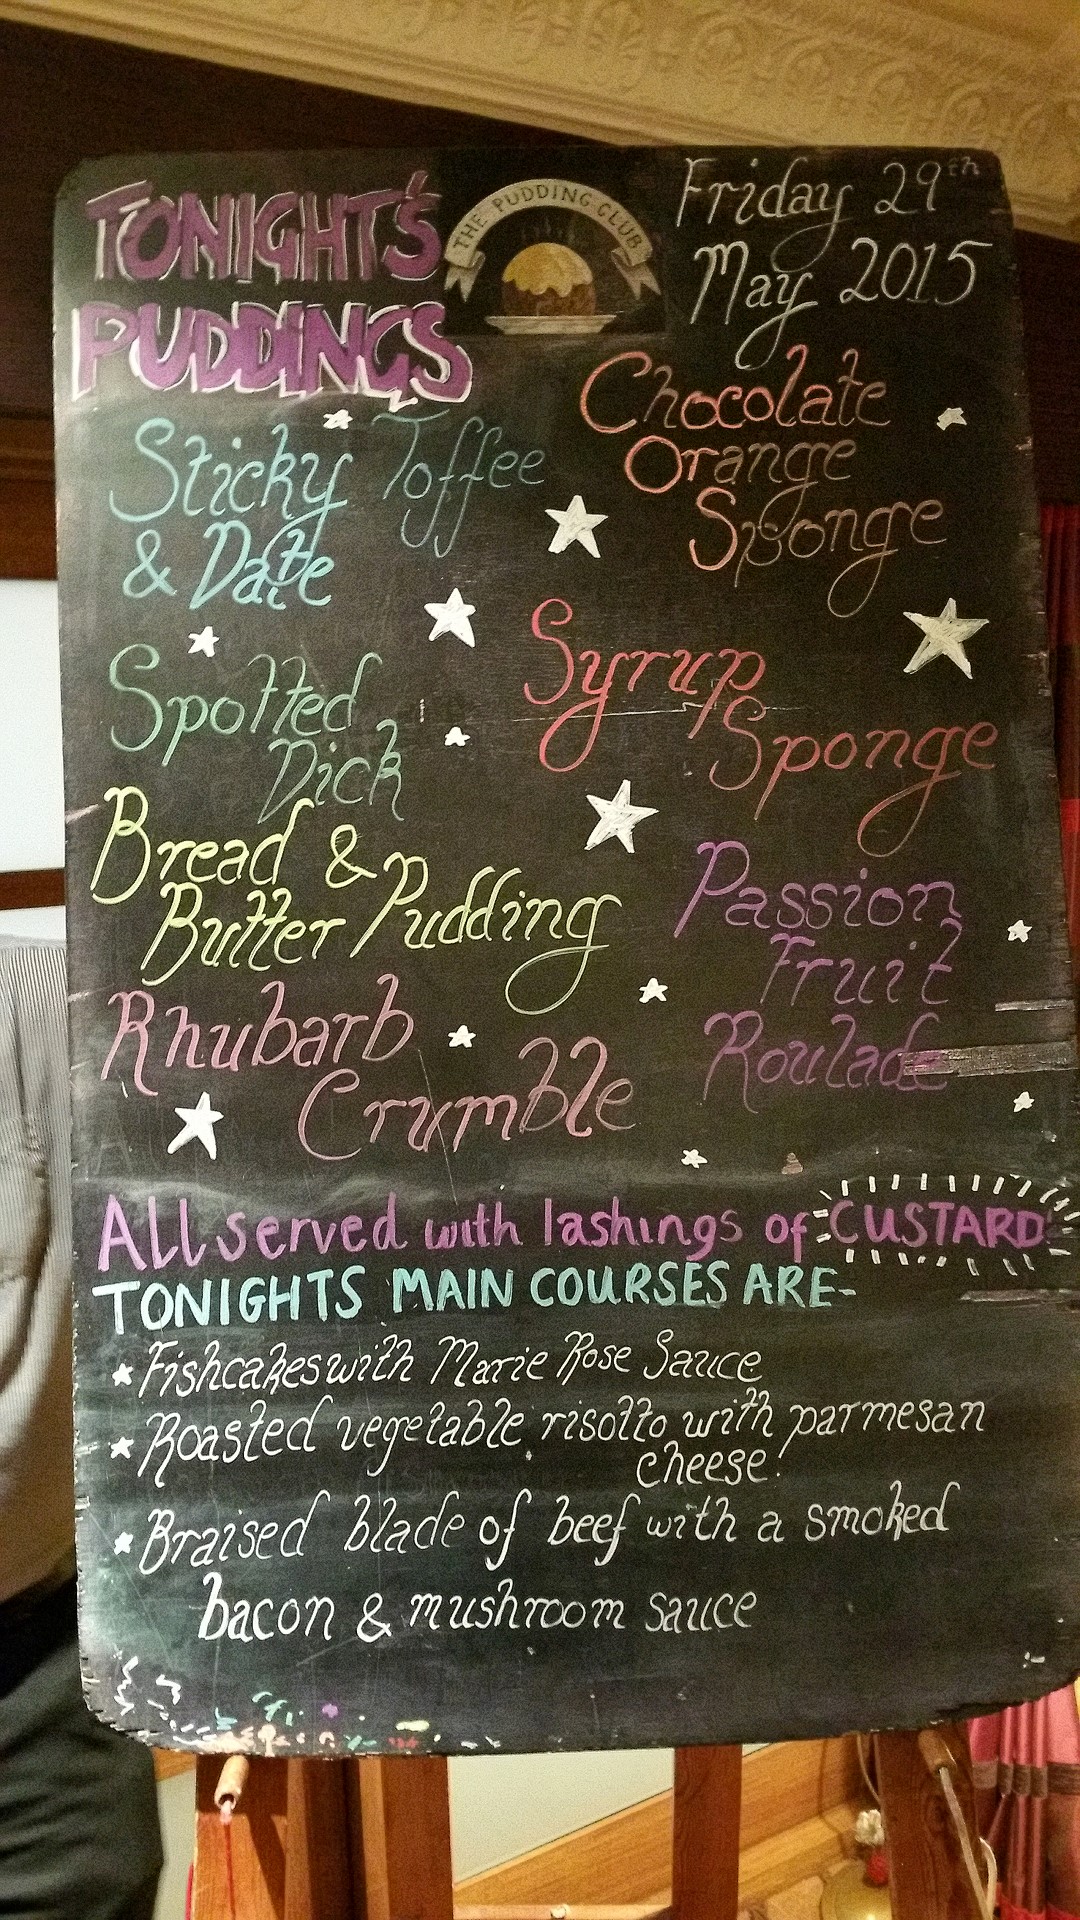 TONIGHT'S
PUDDINGS
THE PUDDING CLUB
Friday 29th
May 2015
Sticky Toffee
& Date
Chocolate
Orange
Sponge
Spotted
Dick
Syrup
Sponge
Bread &
Butter Pudding
Passion
Fruit
Roulade
Rhubarb
Crumble
All served with lashings of CUSTARD
TONIGHTS MAIN COURSES ARE-
* Fishcakes with Marie Rose Sauce
* Roasted vegetable risotto with parmesan
cheese.
* Braised blade of beef with a smoked
bacon & mushroom sauce